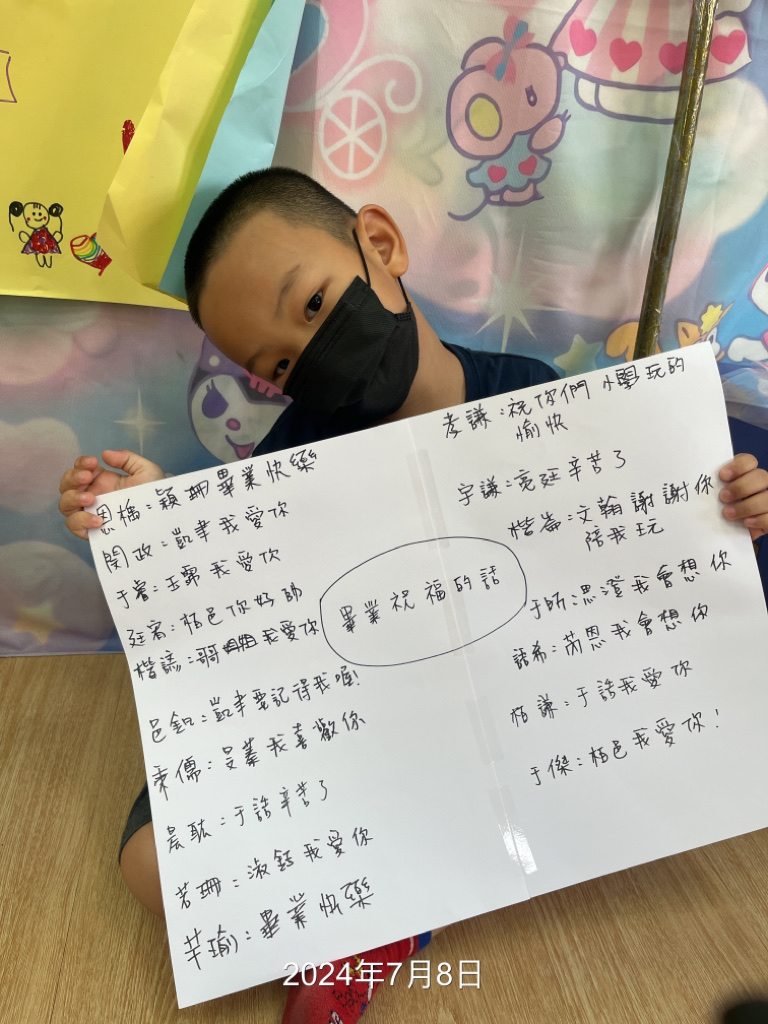 恩橋：穎珊畢業快樂
閔政：凱聿我愛你
于睿：玉霈我愛你
廷宥：栢邑你好帥
楷議：哥 我愛你
邑釩：凱聿要記得我喔!
秉儒：旻蓁我喜歡你
晨駩：于話辛苦了
若珊：淑鈺我愛你
芊瑜：畢業快樂
畢業祝福的話
孝謙：祝你們 小學玩的
愉快
宇謙：亮廷辛苦了
楷崙：文翰謝謝你
陪我玩
于昕：思澄我會想你
語希：芮恩我會想你
栢謙：于話我愛你
于傑：栢邑我愛你!
2024年7月8日